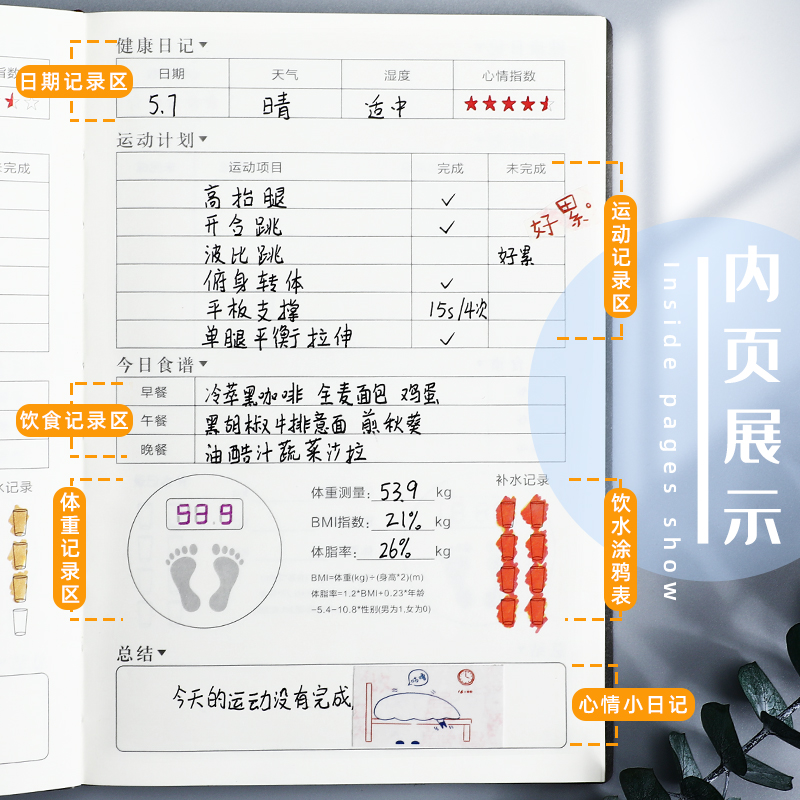 健康日记
日期 天气 湿度 心情指数
5.7 晴 适中
日期记录区
运动计划
运动项目 完成 未完成
高抬腿 ✓
开合跳 ✓
波比跳 好累
俯身转体 ✓
平板支撑 15s/4次
单腿平衡拉伸 ✓
好累。
运动记录区
今日食谱
早餐 冷萃黑咖啡 全麦面包 鸡蛋
午餐 黑胡椒牛排意面 煎秋葵
晚餐 油醋汁蔬菜沙拉
饮食记录区
53.9
体重测量: 53.9 kg
BMI指数: 21% kg
体脂率: 26% kg
BMI=体重(kg)÷(身高*2)(m)
体脂率=1.2*BMI+0.23*年龄
-5.4-10.8*性别(男为1,女为0)
补水记录
体重记录区
饮水涂鸦表
总结
今天的运动没有完成
心情小日记
内页展示
Inside pages show
指数
未完成
水记录